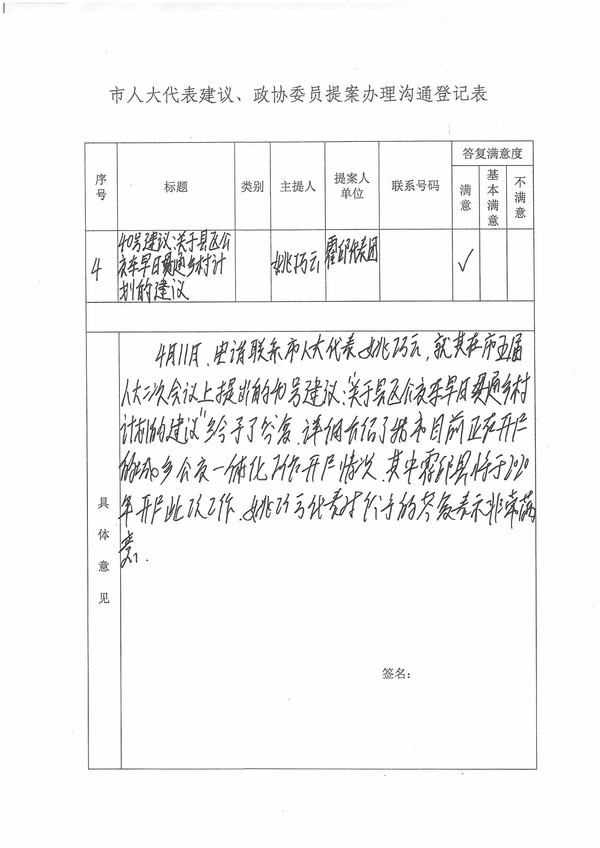 市人大代表建议、政协委员提案办理沟通登记表
序号 标题 类别 主提人 提案人单位 联系号码 答复满意度
满意 基本满意 不满意
4 40号建议:关于县区公交车早日贯通乡村计划的建议 姚巧云 霍邱代表团 ✓
具体意见
4月11日,申请联系市人大代表姚巧云,就其在市五届
人大二次会议上提出的40号建议:“关于县区公交车早日贯通乡村
计划的建议”给予了答复,详细介绍了我市目前正在开展
的城乡公交一体化工作开展情况,其中霍邱县将于2020
年开展此项工作,姚巧云代表对给予的答复表示非常满
意。
签名: